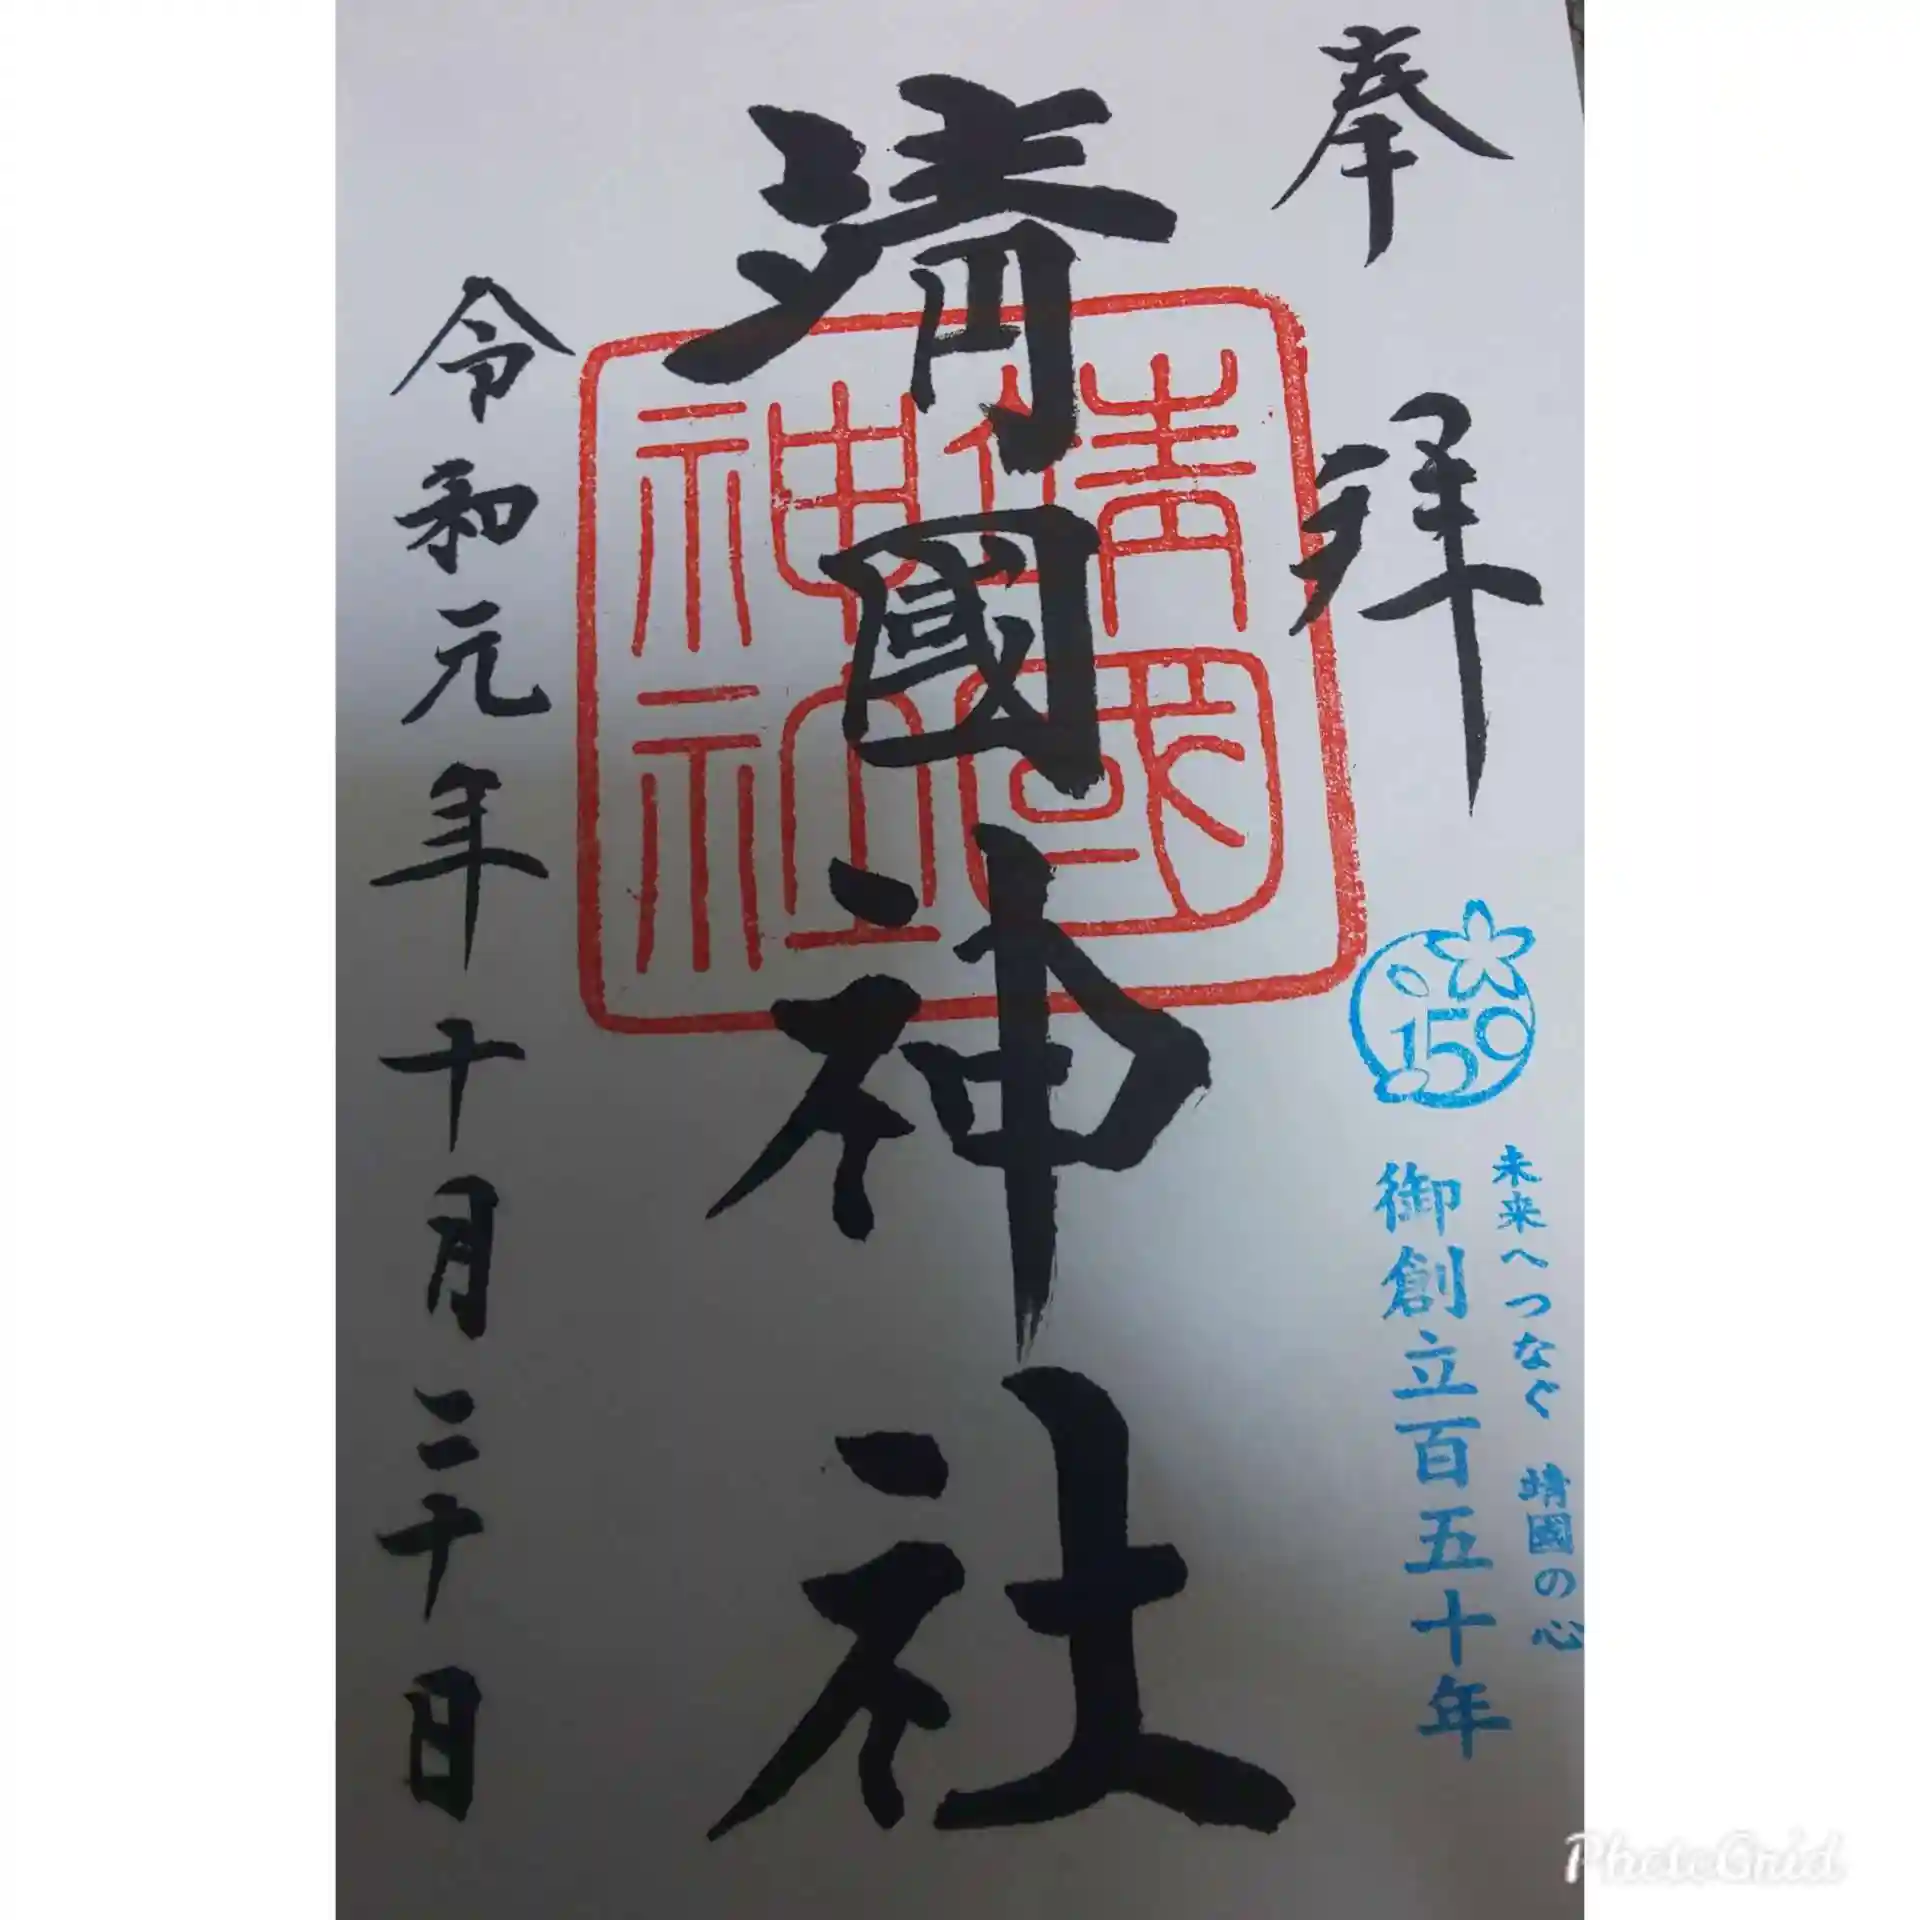 奉拝
150
未来へつなぐ 靖國の心
御創立百五十年
靖國神社
靖國
神社
令和元年十月二十日
PhotoGrid